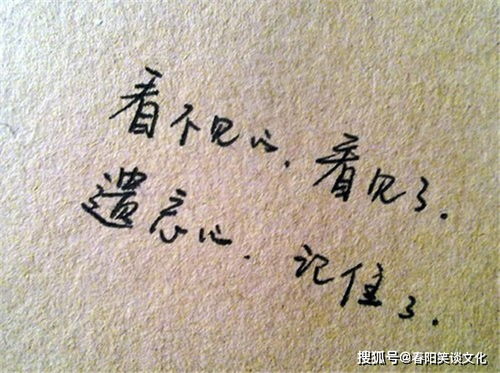 看不见的，看见了。
遗忘的，记住了。
搜狐号@春阳笑谈文化